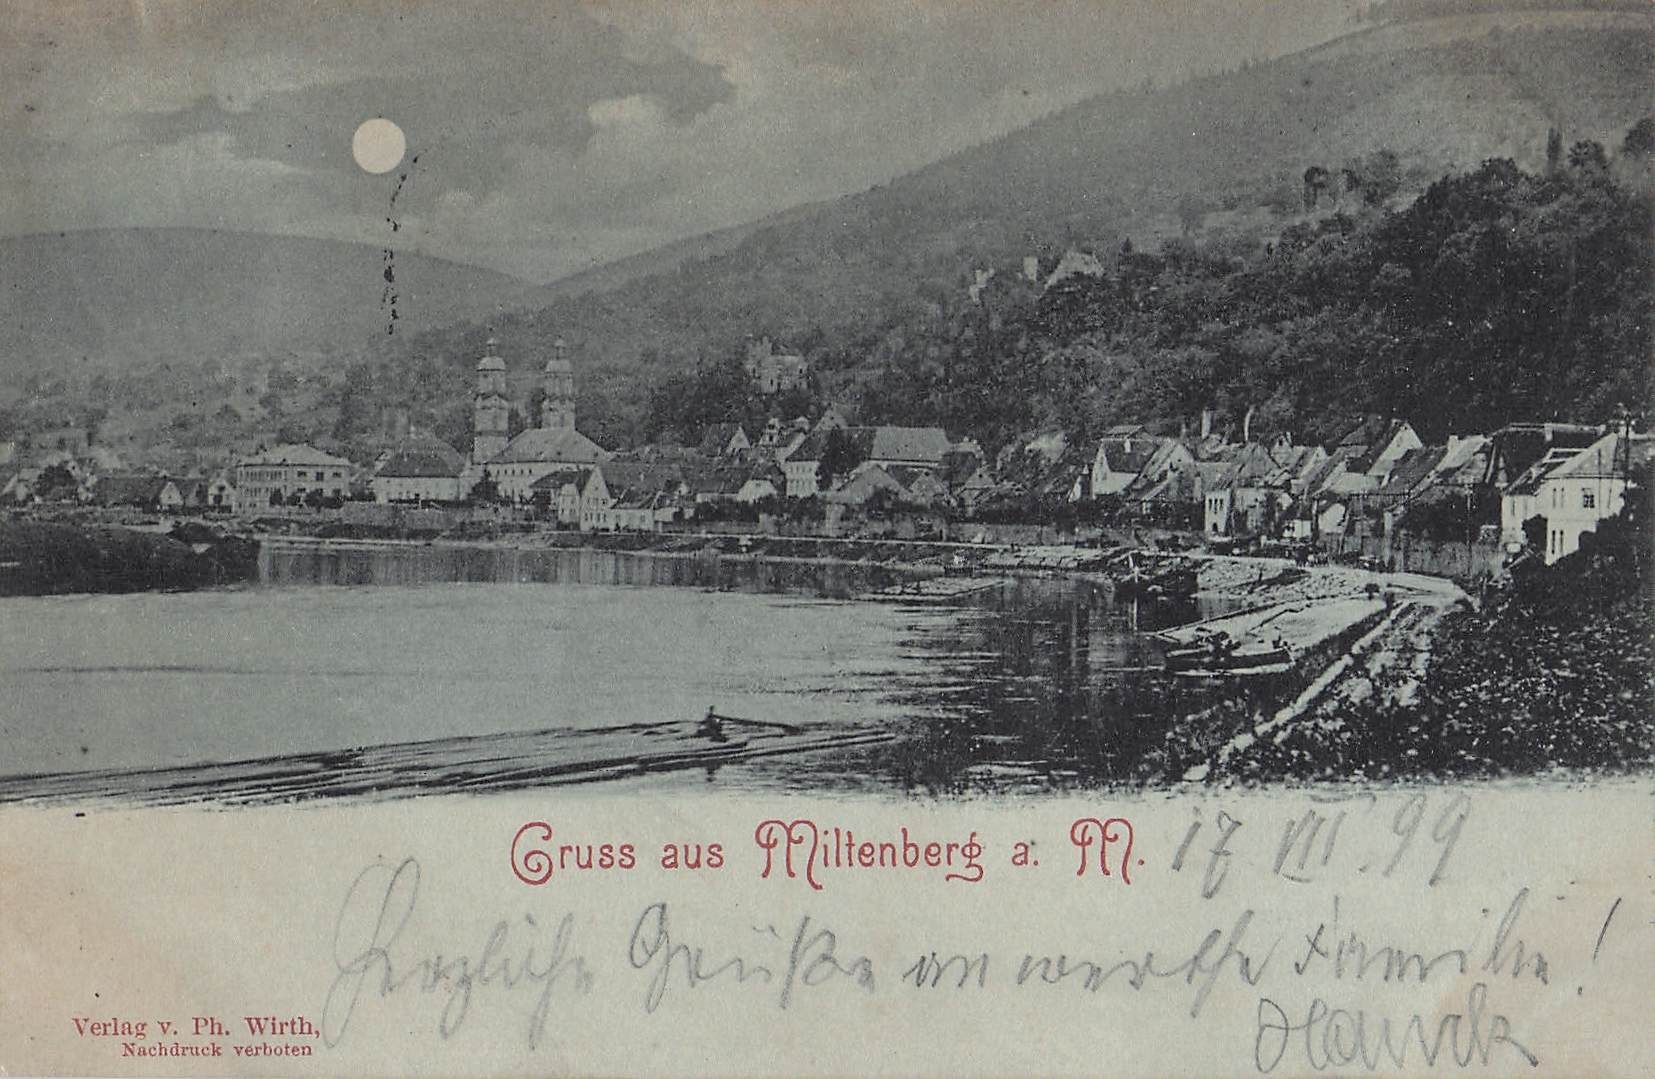 Gruss aus Miltenberg a. M.
17 VII. 99
Herzliche Grüße an werthe Familie!
Verlag v. Ph. Wirth,
Nachdruck verboten